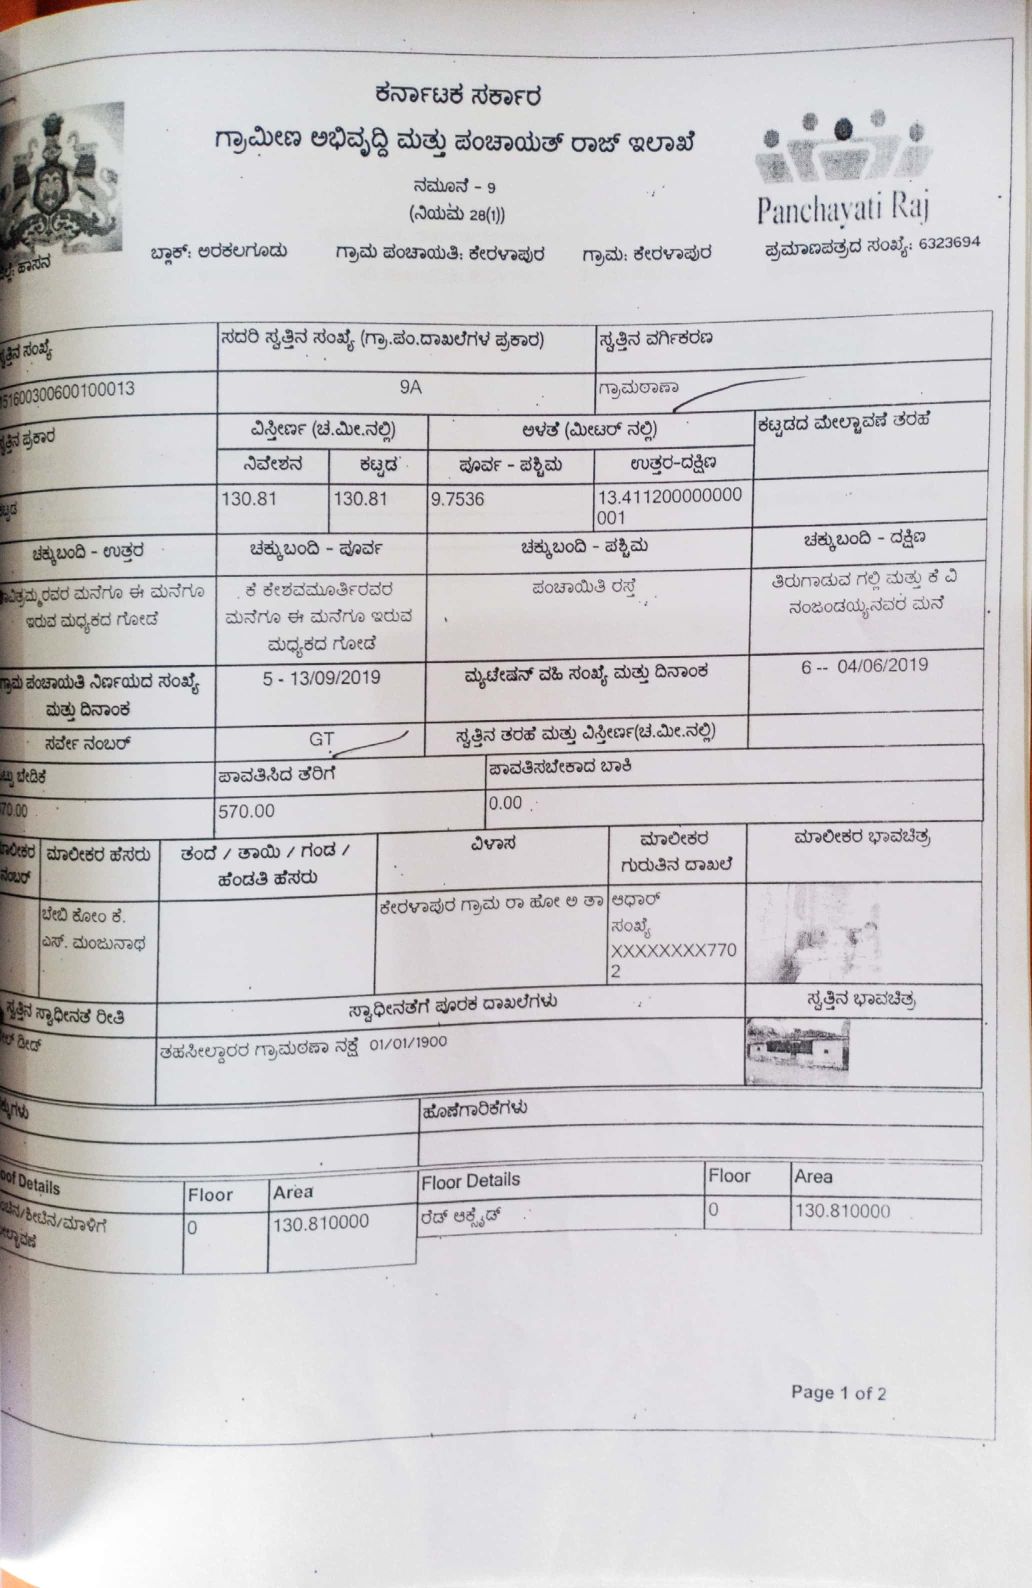 ಕರ್ನಾಟಕ ಸರ್ಕಾರ
ಗ್ರಾಮೀಣ ಅಭಿವೃದ್ದಿ ಮತ್ತು ಪಂಚಾಯತ್ ರಾಜ್ ಇಲಾಖೆ
ನಮೂನೆ - 9
(ನಿಯಮ 28(1))
Panchayati Raj
ಹಾಸನ
ಬ್ಲಾಕ್: ಅರಕಲಗೂಡು ಗ್ರಾಮ ಪಂಚಾಯತಿ: ಕೇರಳಾಪುರ ಗ್ರಾಮ: ಕೇರಳಾಪುರ ಪ್ರಮಾಣಪತ್ರದ ಸಂಖ್ಯೆ: 6323694
ಸಂಖ್ಯೆ ಸದರಿ ಸ್ವತ್ತಿನ ಸಂಖ್ಯೆ (ಗ್ರಾ.ಪಂ.ದಾಖಲೆಗಳ ಪ್ರಕಾರ) ಸ್ವತ್ತಿನ ವರ್ಗಿಕರಣ
51600300600100013 9A ಗ್ರಾಮಠಾಣಾ
ಪ್ರಕಾರ ವಿಸ್ತೀರ್ಣ (ಚ.ಮೀ.ನಲ್ಲಿ) ಅಳತೆ (ಮೀಟರ್ ನಲ್ಲಿ) ಕಟ್ಟಡದ ಮೇಲ್ಚಾವಣೆ ತರಹೆ
ನಿವೇಶನ ಕಟ್ಟಡ ಪೂರ್ವ - ಪಶ್ಚಿಮ ಉತ್ತರ-ದಕ್ಷಿಣ
130.81 130.81 9.7536 13.411200000000
001
ಚಕ್ಕುಬಂದಿ - ಉತ್ತರ ಚಕ್ಕುಬಂದಿ - ಪೂರ್ವ ಚಕ್ಕುಬಂದಿ - ಪಶ್ಚಿಮ ಚಕ್ಕುಬಂದಿ - ದಕ್ಷಿಣ
ಮನೆಗೂ ಈ ಮನೆಗೂ
ಇರುವ ಮಧ್ಯಕದ ಗೋಡೆ
ಕೆ ಕೇಶವಮೂರ್ತಿರವರ
ಮನೆಗೂ ಈ ಮನೆಗೂ ಇರುವ
ಮಧ್ಯಕದ ಗೋಡೆ
ಪಂಚಾಯಿತಿ ರಸ್ತೆ
ತಿರುಗಾಡುವ ಗಲ್ಲಿ ಮತ್ತು ಕೆ ವಿ
ನಂಜಂಡಯ್ಯನವರ ಮನೆ
ಗ್ರಾಮ ಪಂಚಾಯತಿ ನಿರ್ಣಯದ ಸಂಖ್ಯೆ
ಮತ್ತು ದಿನಾಂಕ
5 - 13/09/2019
ಮ್ಯುಟೇಷನ್ ವಹಿ ಸಂಖ್ಯೆ ಮತ್ತು ದಿನಾಂಕ
6 -- 04/06/2019
ಸರ್ವೇ ನಂಬರ್ GT ಸ್ವತ್ತಿನ ತರಹೆ ಮತ್ತು ವಿಸ್ತೀರ್ಣ(ಚ.ಮೀ.ನಲ್ಲಿ)
ಬೇಡಿಕೆ ಪಾವತಿಸಿದ ತೆರಿಗೆ ಪಾವತಿಸಬೇಕಾದ ಬಾಕಿ
70.00 570.00 0.00
ಮಾಲೀಕರ
ನಂಬರ್
ಮಾಲೀಕರ ಹೆಸರು
ತಂದೆ / ತಾಯಿ / ಗಂಡ /
ಹೆಂಡತಿ ಹೆಸರು
ವಿಳಾಸ
ಮಾಲೀಕರ
ಗುರುತಿನ ದಾಖಲೆ
ಮಾಲೀಕರ ಭಾವಚಿತ್ರ
ಬೇಬಿ ಕೋಂ ಕೆ.
ಎಸ್. ಮಂಜುನಾಥ
ಕೇರಳಾಪುರ ಗ್ರಾಮ ರಾ ಹೋ ಅ ತಾ
ಆಧಾರ್
ಸಂಖ್ಯೆ
XXXXXXXX770
2
ಸ್ವತ್ತಿನ ಸ್ವಾಧೀನತೆ ರೀತಿ ಸ್ವಾಧೀನತೆಗೆ ಪೂರಕ ದಾಖಲೆಗಳು ಸ್ವತ್ತಿನ ಭಾವಚಿತ್ರ
ಡೀಡ್ ತಹಸೀಲ್ದಾರರ ಗ್ರಾಮಠಣಾ ನಕ್ಷೆ 01/01/1900
ಹೊಣೆಗಾರಿಕೆಗಳು
Details Floor Area Floor Details Floor Area
0 130.810000 ರೆಡ್ ಆಕ್ಸೈಡ್ 0 130.810000
Page 1 of 2